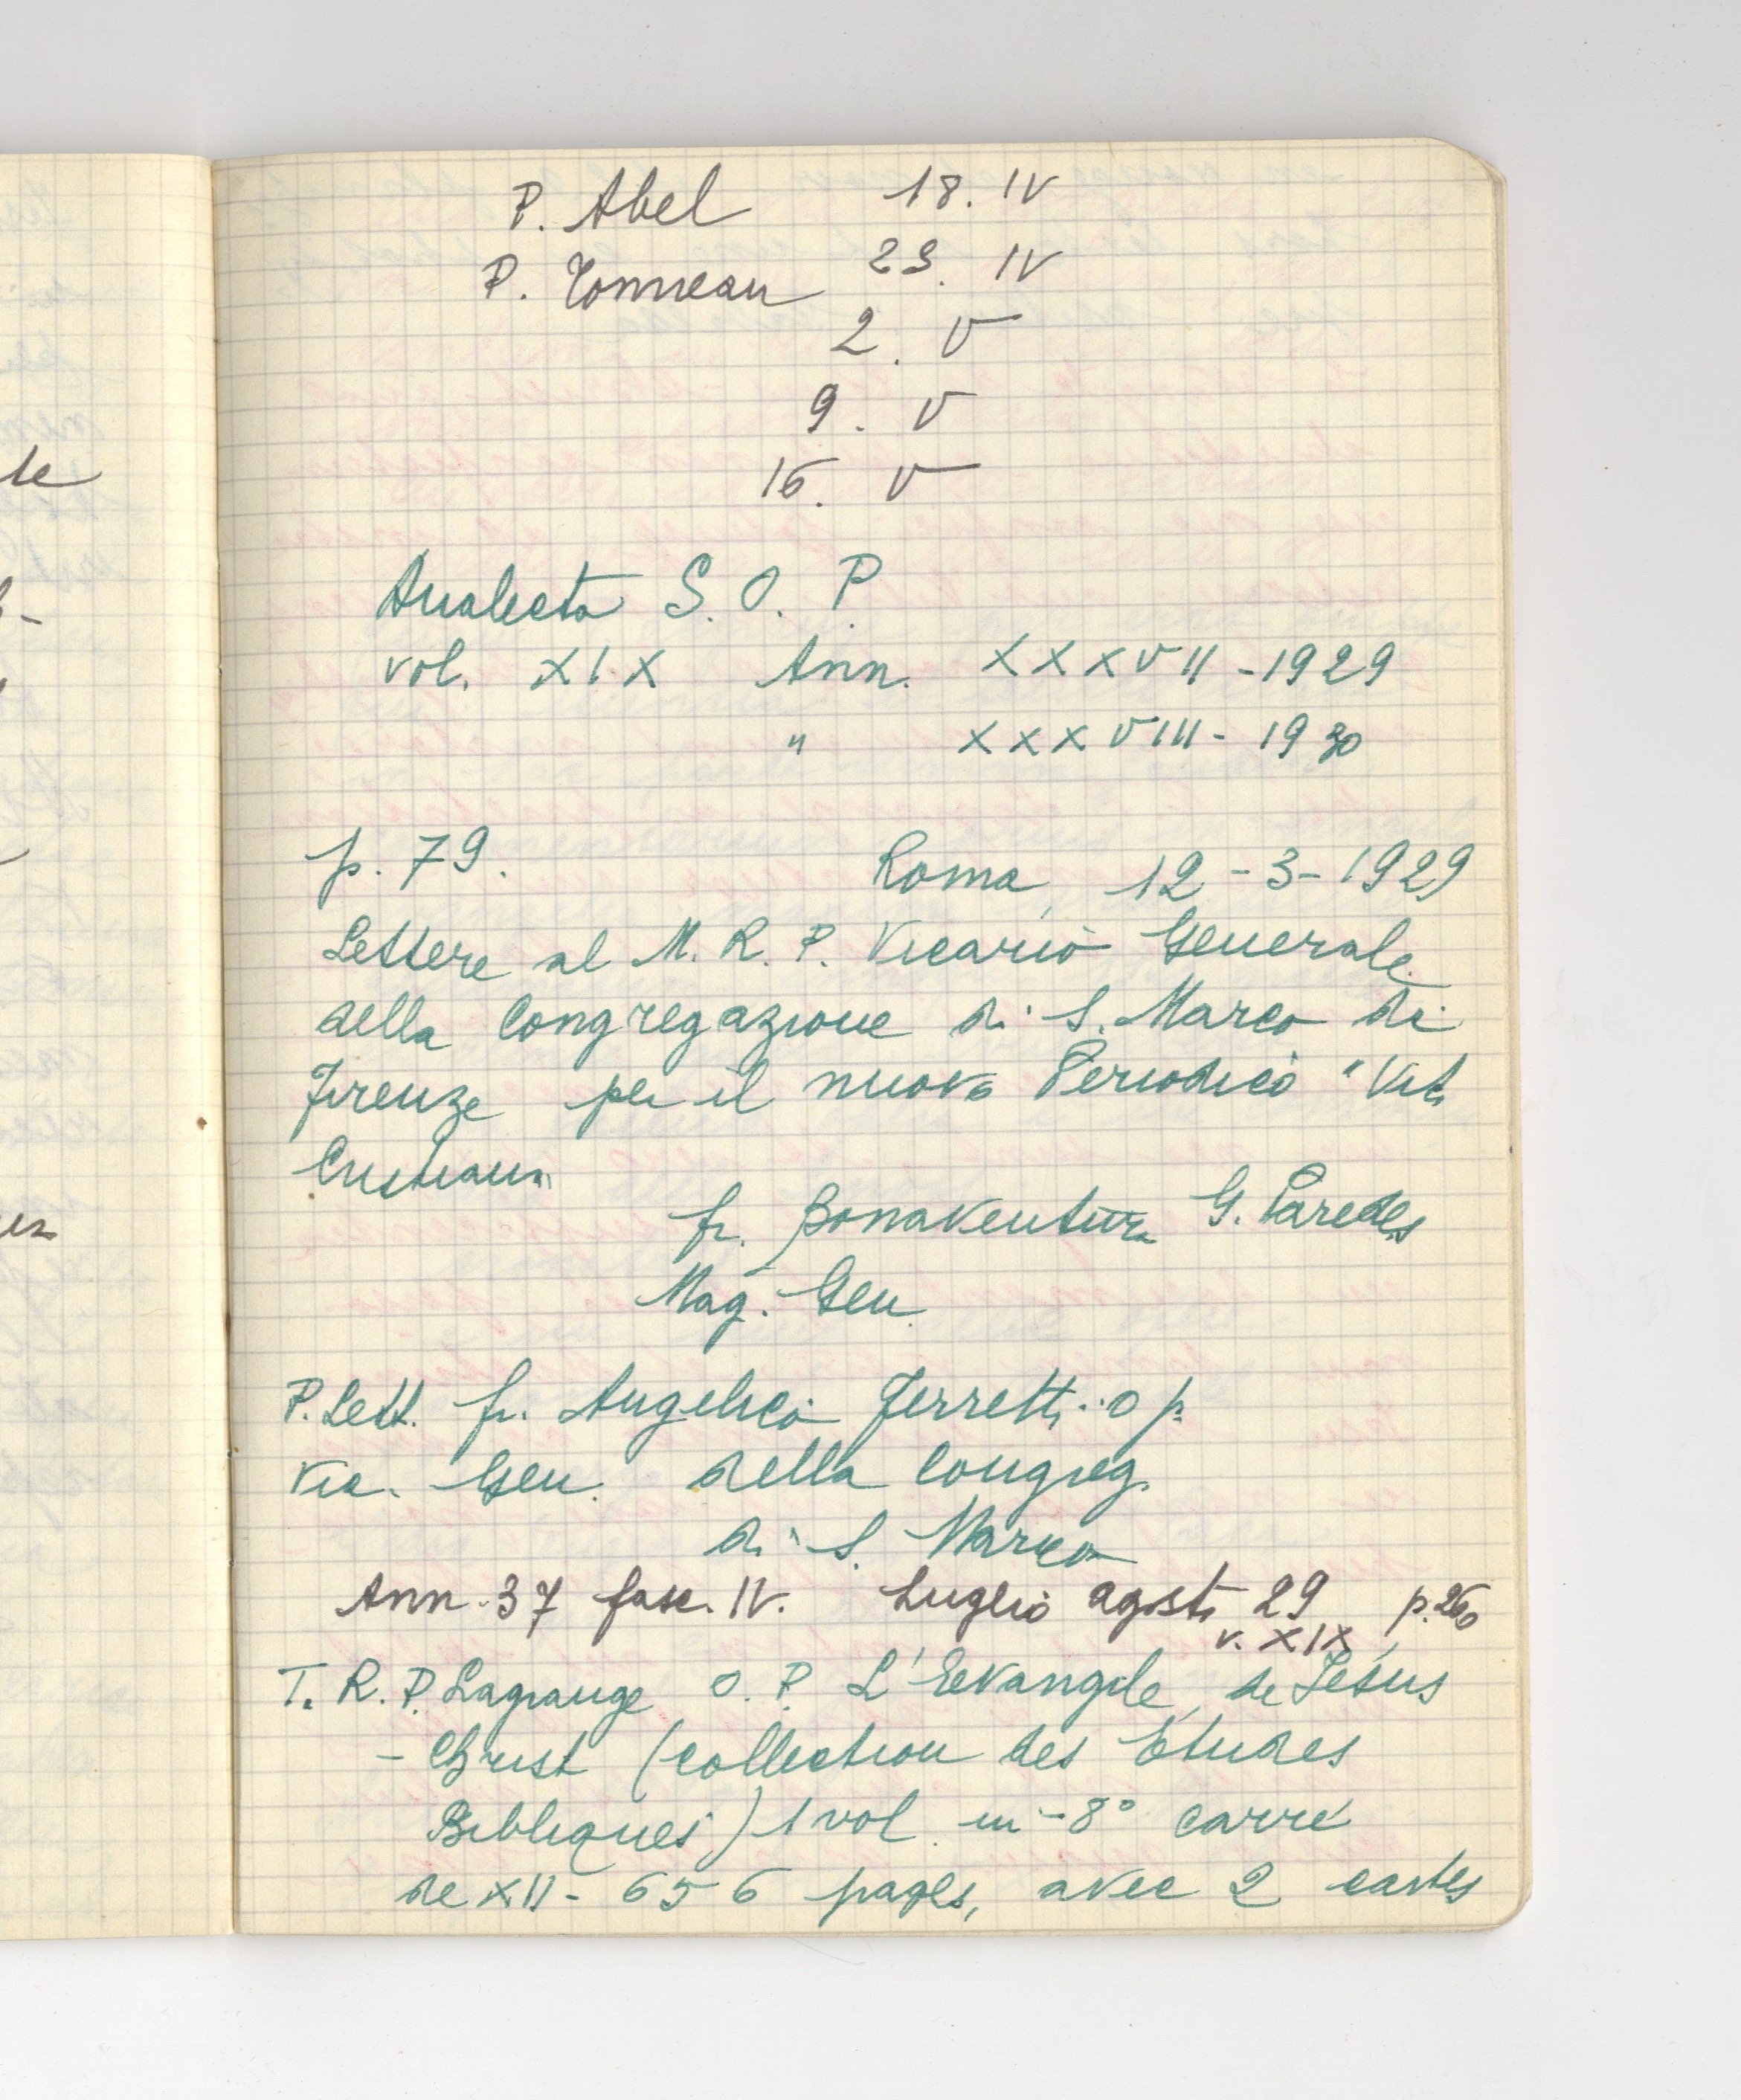 P. Abel 18. IV
P. Tonneau 23. IV
2. V
9. V
16. V
Analecta S. O. P.
vol. XIX Ann. XXXVII - 1929
" XXXVIII - 1930
p. 79. Roma, 12-3-1929
Lettere al M. R. P. Vicario Generale
della Congregazione di S. Marco di
Firenze per il nuovo Periodico "Vita
Cristiana"
fr. Bonaventura G. Paredes
Mag. Gen.
P. Lett. fr. Angelico Ferretti o p.
Vic. Gen. della Congreg.
di S. Marco
Ann. 37 fasc. IV. Luglio agosto 29 p. 260
v. XIX
T. R. P. Lagrange O. P. L'Evangile de Jésus
- Christ (collection des Etudes
Bibliques) 1 vol. in-8° carré
de XII - 656 pages, avec 2 cartes
te